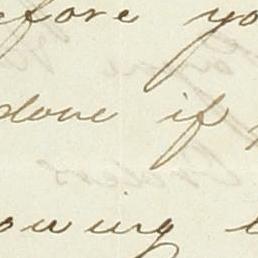 efore yo
done if
owing